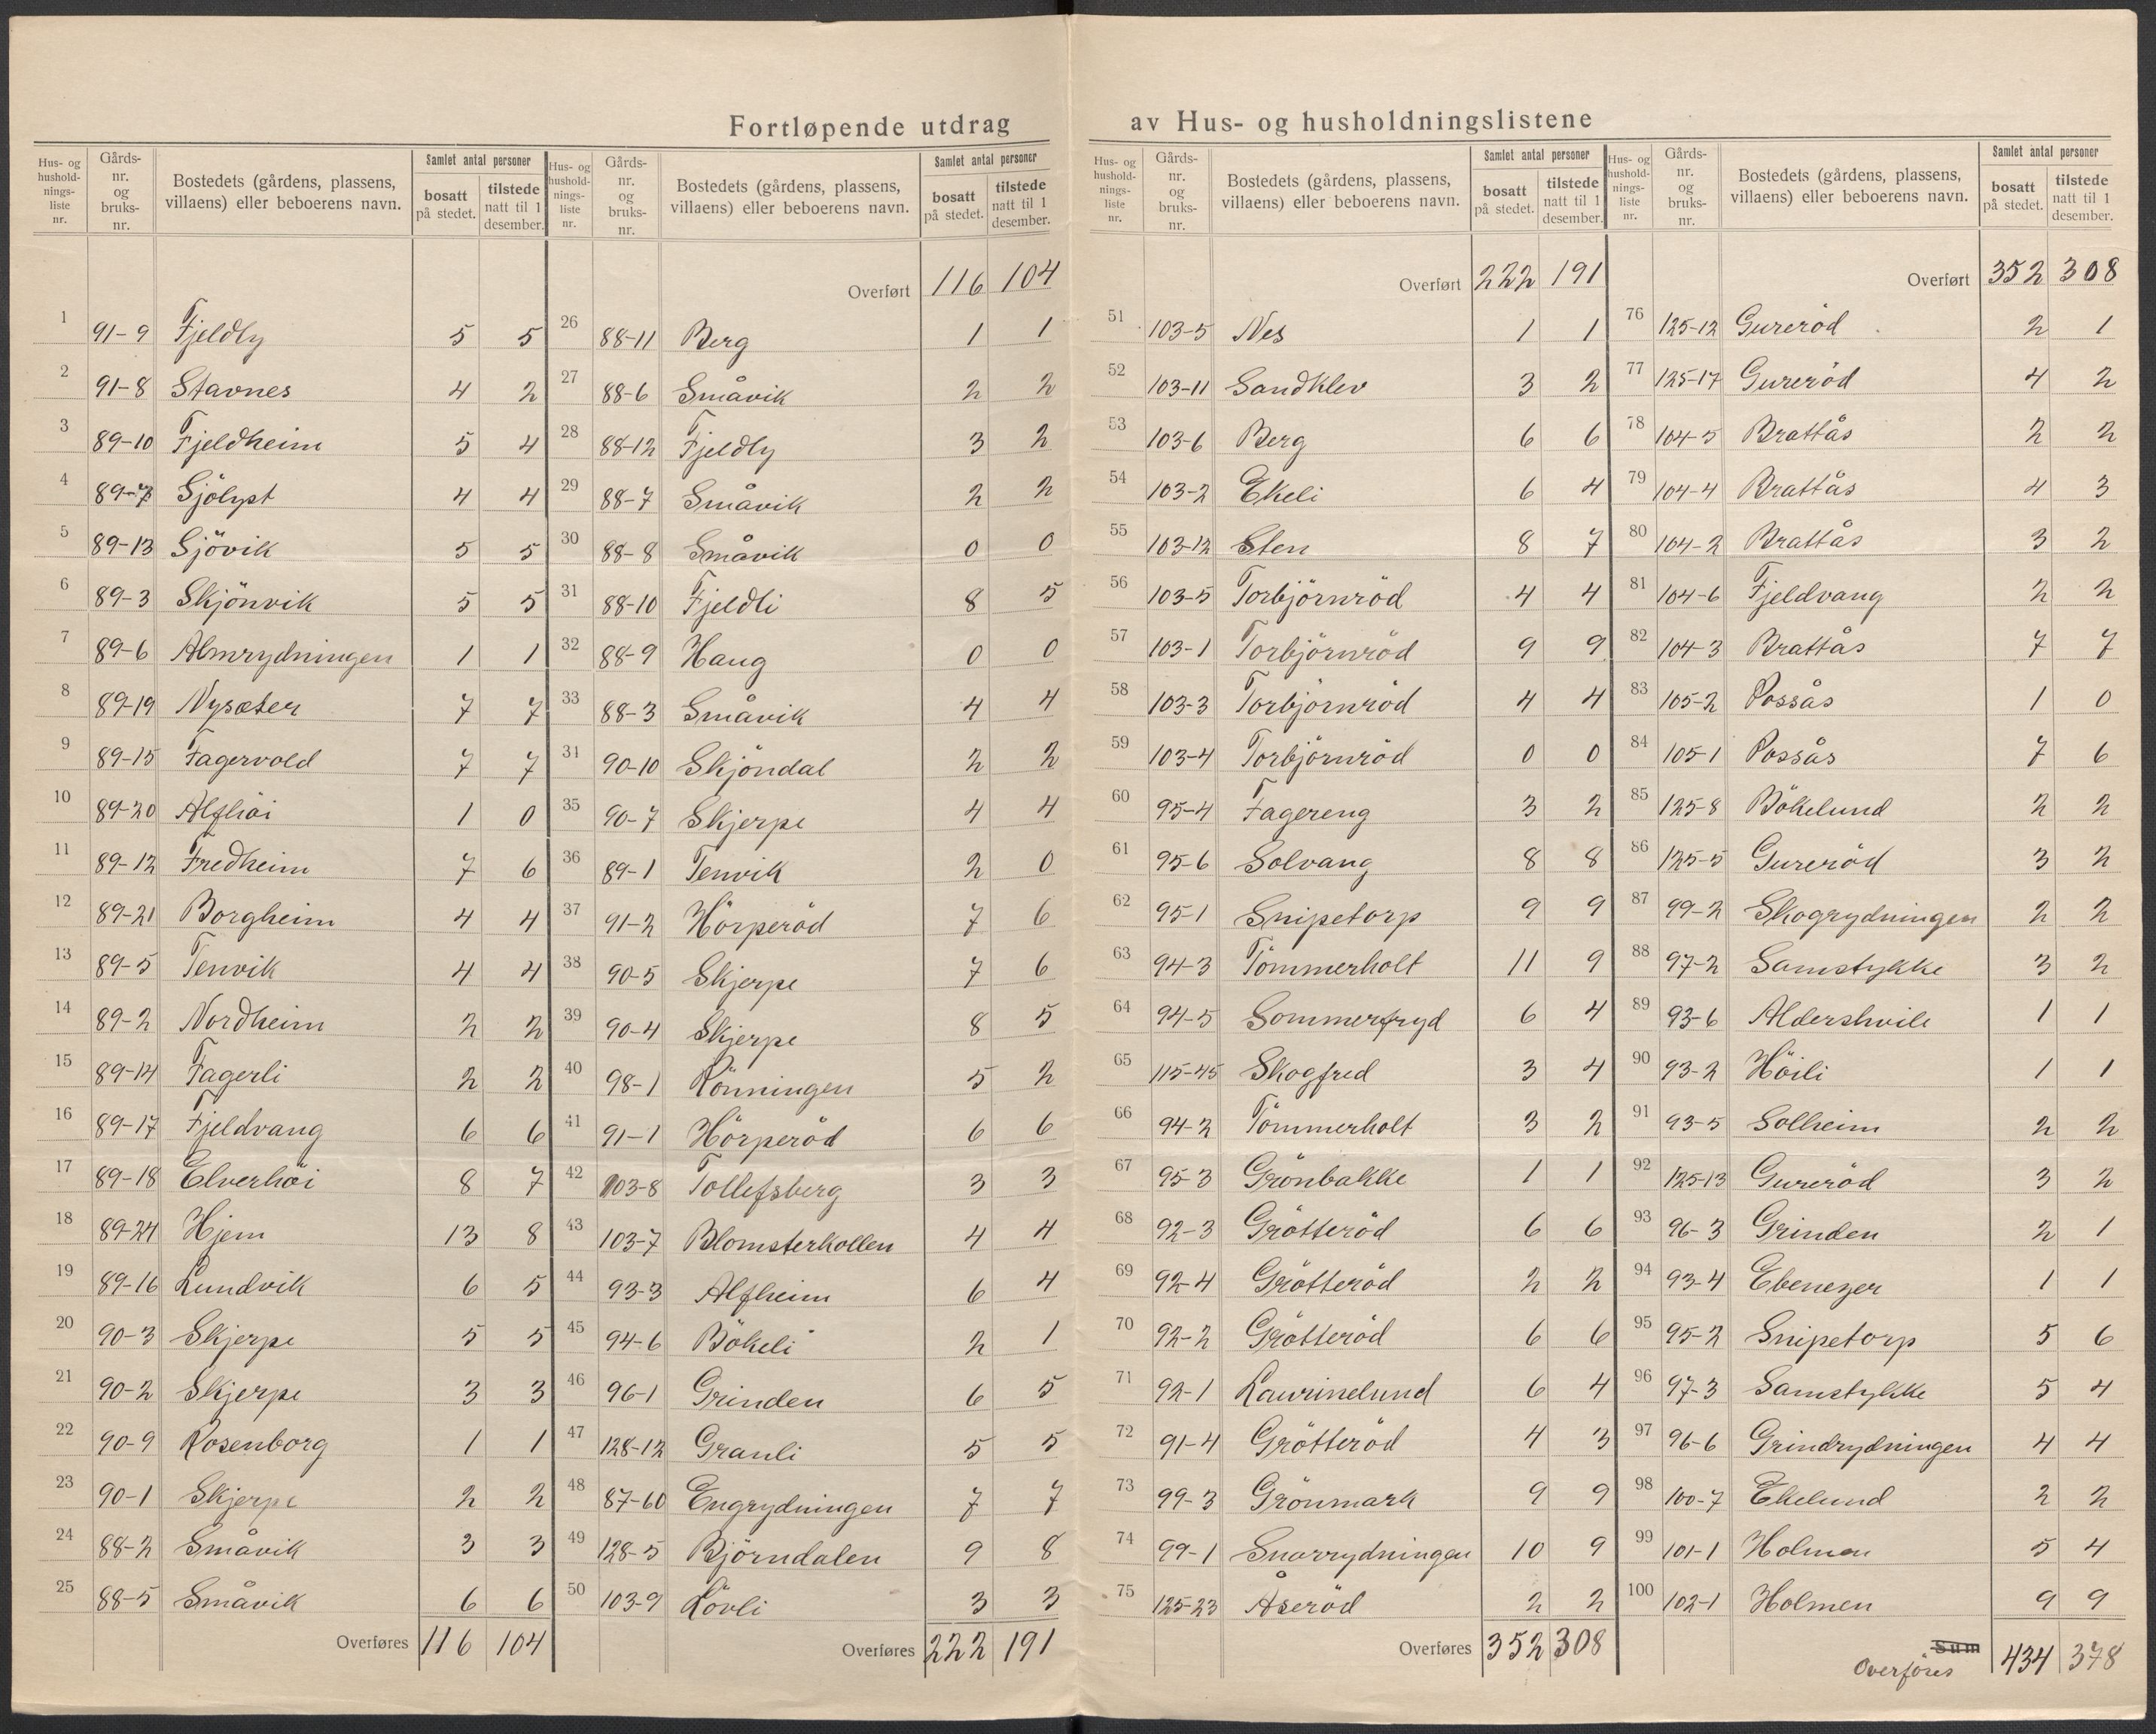 Fortløpende utdrag av Hus- og husholdningslistene
Hus- og hushold-nings-liste nr. Gårds-nr. og bruks-nr. Bostedets (gårdens, plassens, villaens) eller beboerens navn. Samlet antal personer bosatt på stedet. tilstede natt til 1 desember.
1 91-9 Fjeldly 5 5
2 91-8 Stavnes 4 2
3 89-10 Fjeldheim 5 4
4 89-7 Sjölyst 4 4
5 89-13 Sjövik 5 5
6 89-3 Skjönvik 5 5
7 89-6 Almrydningen 1 1
8 89-19 Nysæter 7 7
9 89-15 Fagervold 7 7
10 89-20 Alfhöi 1 0
11 89-12 Fredheim 7 6
12 89-21 Borgheim 4 4
13 89-5 Tenvik 4 4
14 89-2 Nordheim 2 2
15 89-14 Fagerli 2 2
16 89-17 Fjeldvang 6 6
17 89-18 Elverhöi 8 7
18 89-24 Hjem 13 8
19 89-16 Lundvik 6 5
20 90-3 Skjerpe 5 5
21 90-2 Skjerpe 3 3
22 90-9 Rosenborg 1 1
23 90-1 Skjerpe 2 2
24 88-2 Småvik 3 3
25 88-5 Småvik 6 6
Overføres 116 104
Hus- og hushold-nings-liste nr. Gårds-nr. og bruks-nr. Bostedets (gårdens, plassens, villaens) eller beboerens navn. Samlet antal personer bosatt på stedet. tilstede natt til 1 desember.
Overført 116 104
26 88-11 Berg 1 1
27 88-6 Småvik 2 2
28 88-12 Fjeldly 3 2
29 88-7 Småvik 2 2
30 88-8 Småvik 0 0
31 88-10 Fjeldli 8 5
32 88-9 Haug 0 0
33 88-3 Småvik 4 4
34 90-10 Skjöndal 2 2
35 90-7 Skjerpe 4 4
36 89-1 Tenvik 2 0
37 91-2 Hörperöd 7 6
38 90-5 Skjerpe 7 6
39 90-4 Skjerpe 8 5
40 98-1 Rönningen 5 2
41 91-1 Hörperöd 6 6
42 103-8 Tollefsberg 3 3
43 103-7 Blomsterkollen 4 4
44 93-3 Alfheim 6 4
45 94-6 Bökeli 2 1
46 96-1 Grinden 6 5
47 128-12 Granli 5 5
48 87-60 Engrydningen 7 7
49 128-5 Björndalen 9 8
50 103-9 Lövli 3 3
Overføres 222 191
Hus- og hushold-nings-liste nr. Gårds-nr. og bruks-nr. Bostedets (gårdens, plassens, villaens) eller beboerens navn. Samlet antal personer bosatt på stedet. tilstede natt til 1 desember.
Overført 222 191
51 103-5 Nes 1 1
52 103-11 Sandklev 3 2
53 103-6 Berg 6 6
54 103-2 Ekeli 6 4
55 103-12 Sten 8 7
56 103-5 Torbjörnröd 4 4
57 103-1 Torbjörnröd 9 9
58 103-3 Torbjörnröd 4 4
59 103-4 Torbjörnröd 0 0
60 95-4 Fagereng 3 2
61 95-6 Solvang 8 8
62 95-1 Snipetorp 9 9
63 94-3 Tömmerholt 11 9
64 94-5 Sommerfryd 6 4
65 115-45 Skogfred 3 4
66 94-2 Tömmerholt 3 2
67 95-3 Grönbakke 1 1
68 92-3 Grötteröd 6 6
69 92-4 Grötteröd 2 2
70 92-2 Grötteröd 6 6
71 92-1 Laurinelund 6 4
72 91-4 Grötteröd 4 3
73 99-3 Grönmark 9 9
74 99-1 Snarrydningen 10 9
75 125-23 Åseröd 2 2
Overføres 352 308
Hus- og hushold-nings-liste nr. Gårds-nr. og bruks-nr. Bostedets (gårdens, plassens, villaens) eller beboerens navn. Samlet antal personer bosatt på stedet. tilstede natt til 1 desember.
Overført 352 308
76 125-12 Gureröd 2 1
77 125-17 Gureröd 4 2
78 104-5 Brattås 2 2
79 104-4 Brattås 4 3
80 104-2 Brattås 3 2
81 104-6 Fjeldvang 2 2
82 104-3 Brattås 7 7
83 105-2 Possås 1 0
84 105-1 Possås 7 6
85 125-8 Bökelund 2 2
86 125-5 Gureröd 3 2
87 99-2 Skogrydningen 2 2
88 97-2 Samstykke 3 2
89 93-6 Aldershvile 1 1
90 93-2 Höili 1 1
91 93-5 Solheim 2 2
92 125-13 Gureröd 3 2
93 96-3 Grinden 2 1
94 93-4 Ebenezer 1 1
95 95-2 Snipetorp 5 6
96 97-3 Samstykke 5 4
97 96-6 Grindrydningen 4 4
98 100-7 Ekelund 2 2
99 101-1 Holmen 5 4
100 102-1 Holmen 9 9
Sum
Overföres 434 378